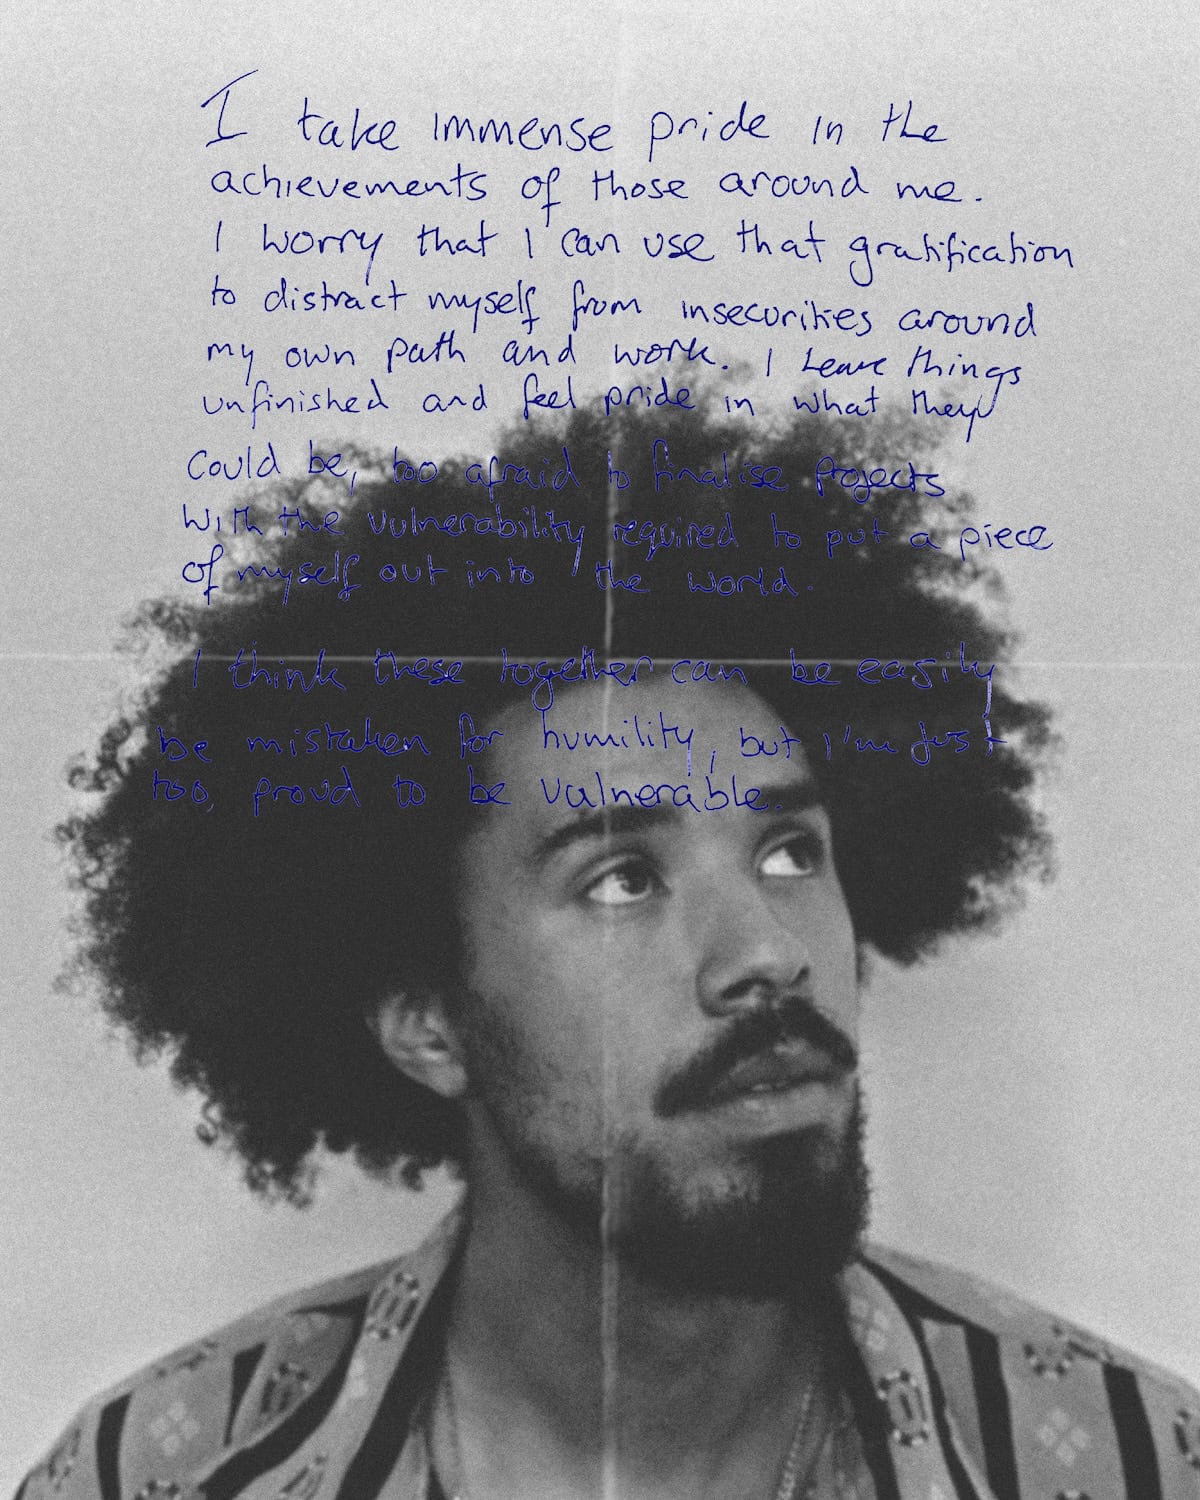 I take immense pride in the
achievements of those around me.
I worry that I can use that gratification
to distract myself from insecurities around
my own path and work. I leave things
unfinished and feel pride in what they
could be, too afraid to finalise projects
with the vulnerability required to put a piece
of myself out into the world.
I think these together can be easily
be mistaken for humility, but I'm just
too proud to be vulnerable.